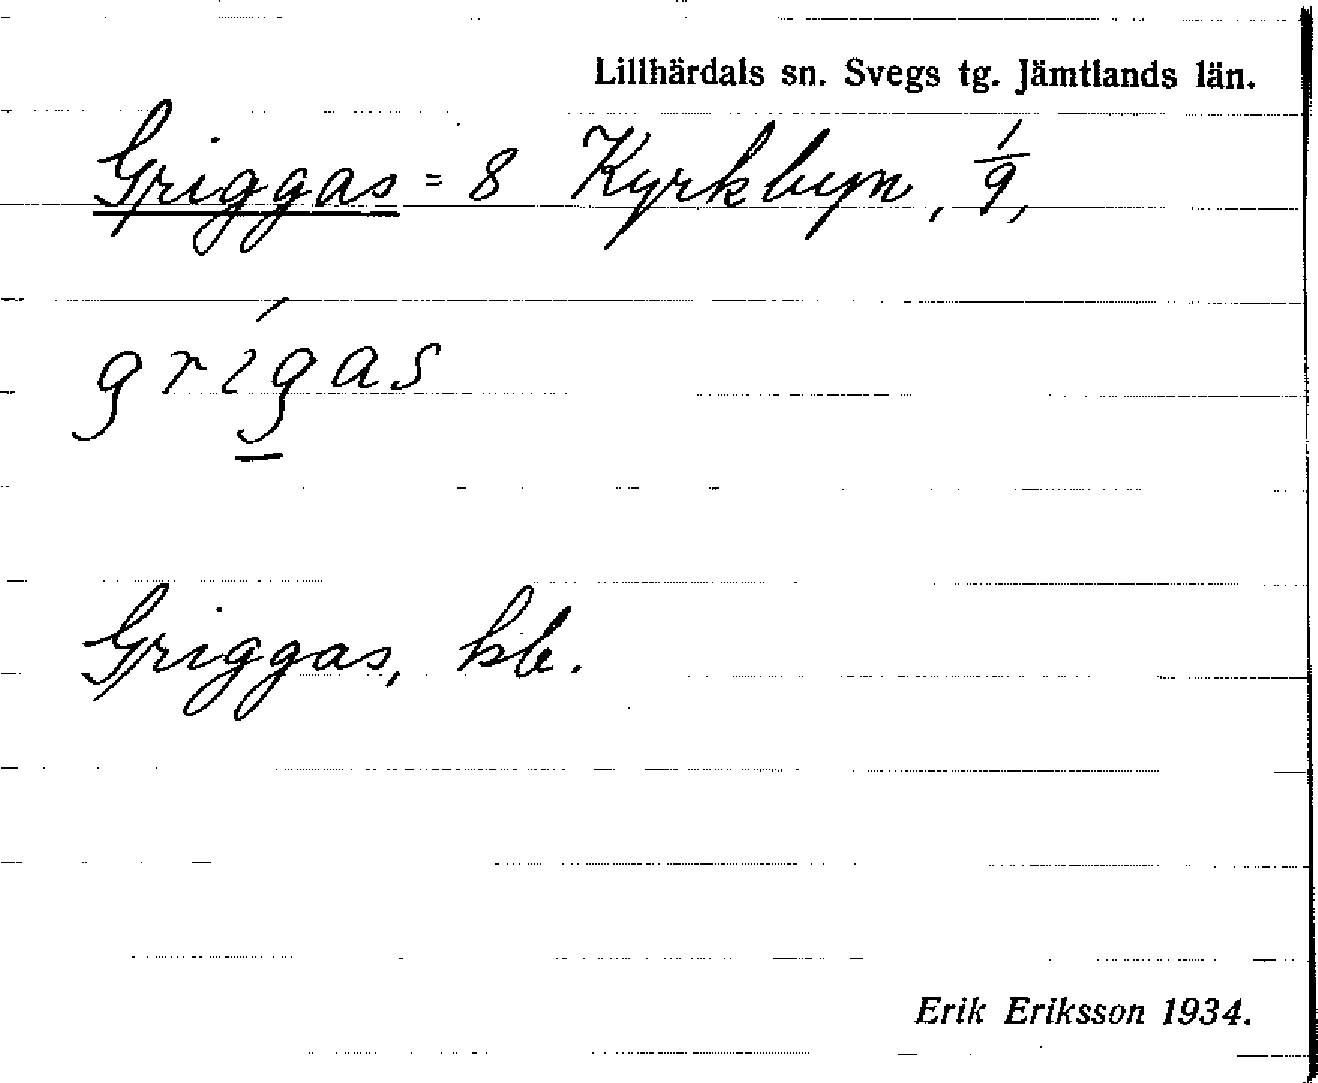 Lillhärdals sn. Svegs tg. Jämtlands län.
Griggas = 8 Kyrkbyn, 1/9,
grígas
Griggas, kb.
Erik Eriksson 1934.